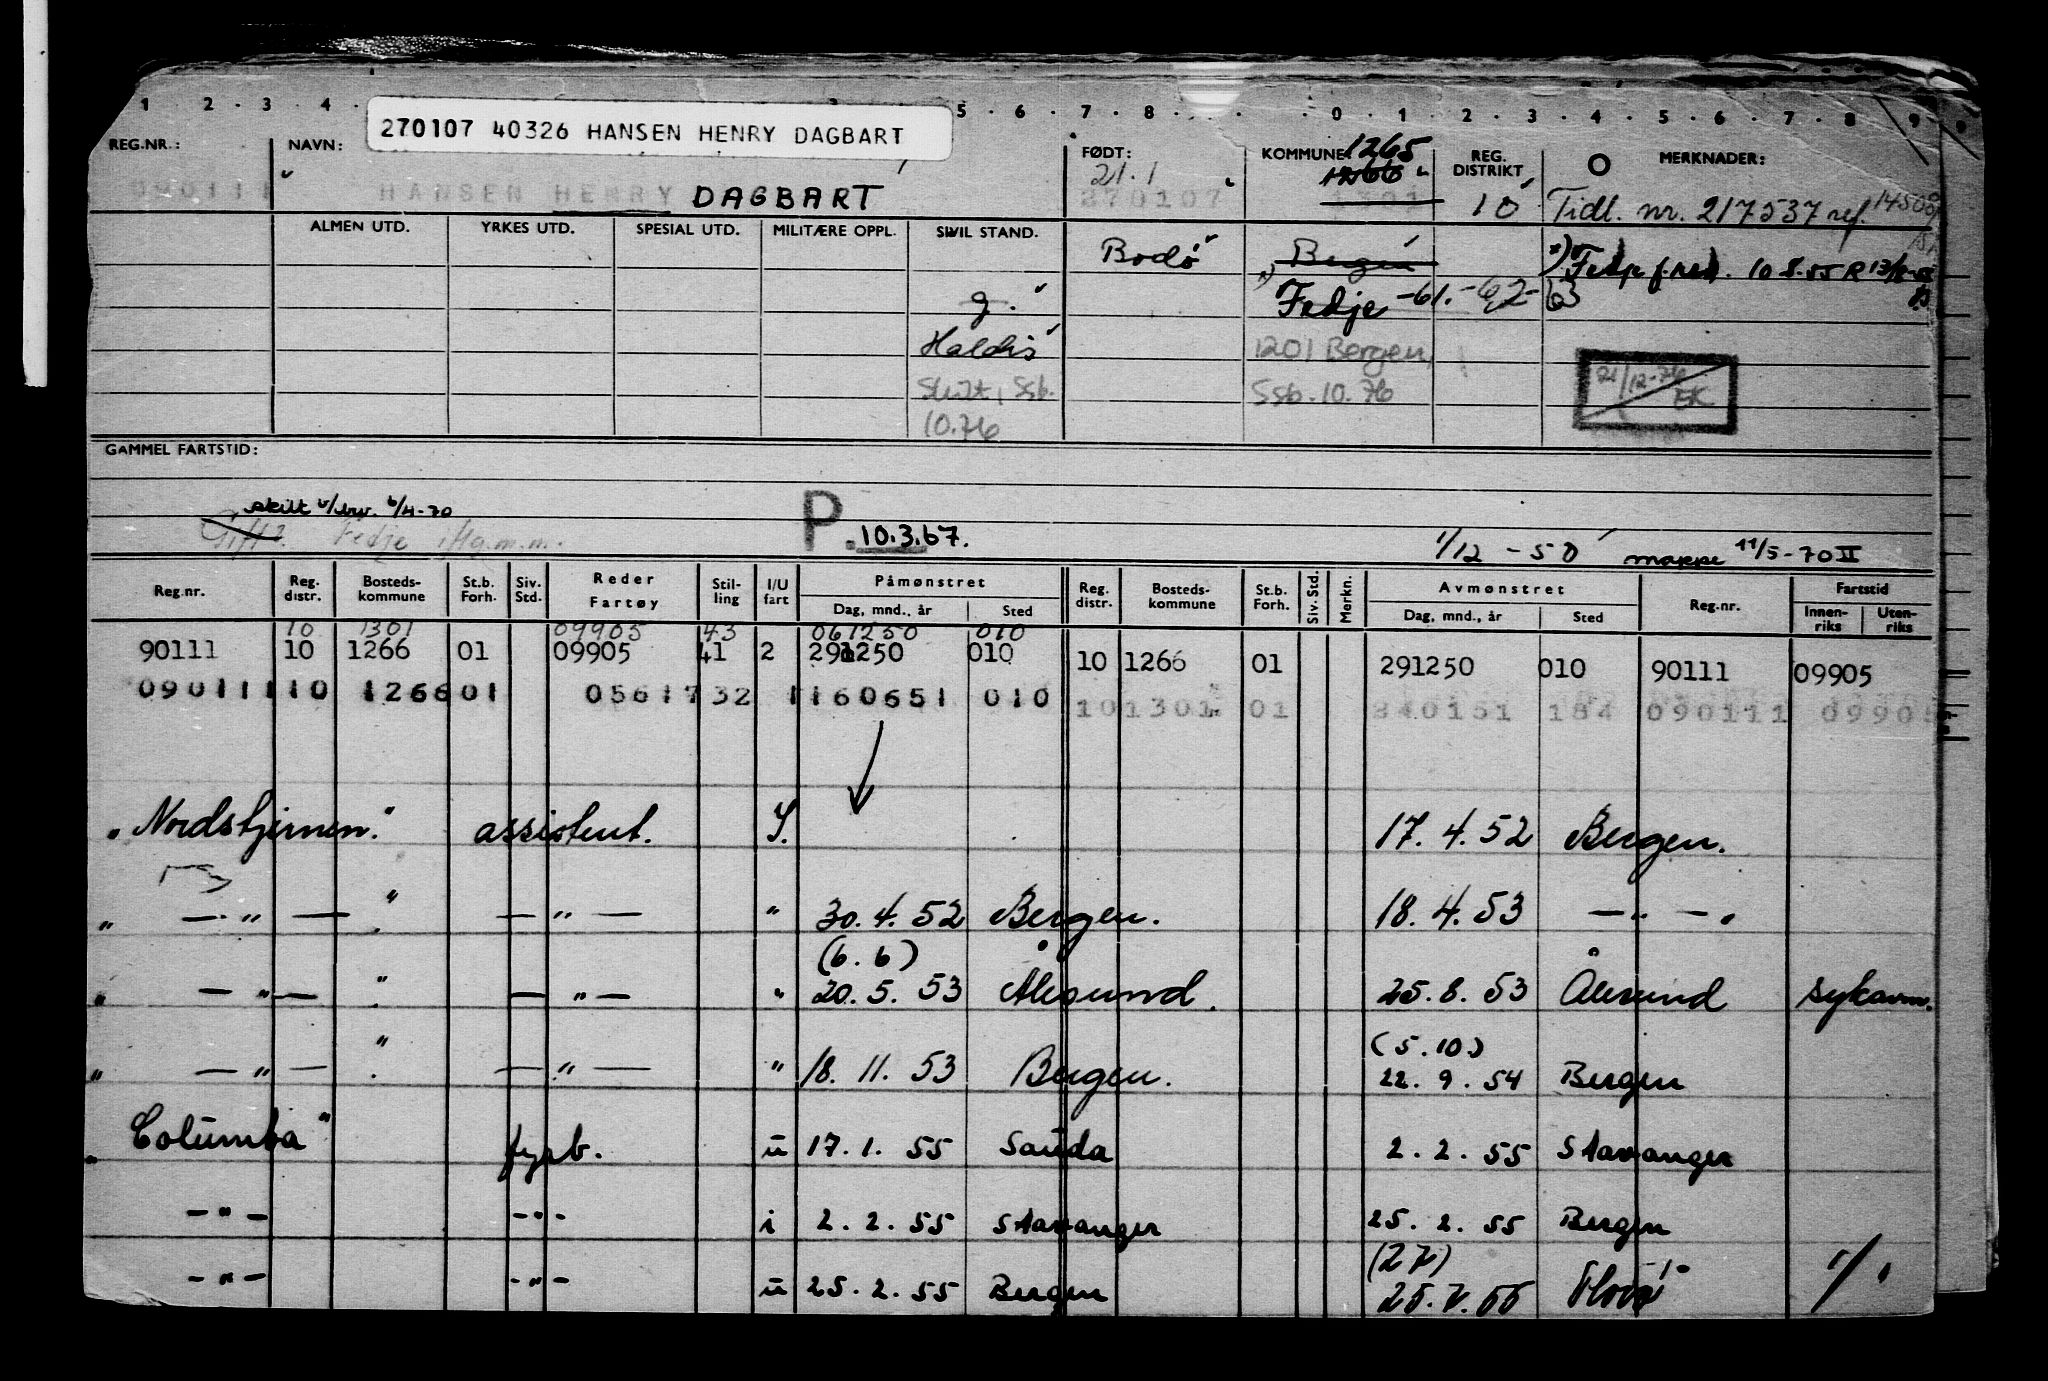 1 . 2 . 3 . 4 . 5 . 6 . 7 . 8 . 0 . 1 . 2 . 3 . 4 . 5 . 6 . 7 . 8 . 9
270107 40326 HANSEN HENRY DAGBART
REG.NR.: NAVN: FØDT: KOMMUNE: 1265 REG. DISTRIKT MERKNADER:
21.1 1266
090111 HANSEN HENRY DAGBART 270107 1301 10 Tidl. nr. 217537 ref.
ALMEN UTD. YRKES UTD. SPESIAL UTD. MILITÆRE OPPL. SIVIL STAND.
Bodø Bergen Fedje 10.8.55 R
g. Fedje -61.-62-63
Haldis 1201 Bergen,
Skilt, Ssb. Ssb. 10.76 21/12-76 EK
10.76
GAMMEL FARTSTID:
skilt 6/4-70
Gift? Fedje P. 10.3.67. 1/12 - 50 mappe 11/5-70 II
Reg.nr. Reg. distr. Bosteds- kommune St.b. Forh. Siv. Std. Reder Fartøy Stil- ling I/U fart Påmønstret Dag, mnd., år Sted Reg. distr. Bosteds- kommune St.b. Forh. Siv. Std. Merkn. Avmønstret Dag, mnd., år Sted Reg.nr. Fartstid Innen- riks Uten- riks
10 1301 09905 43 061250 010
90111 10 1266 01 09905 41 2 291250 010 10 1266 01 291250 010 90111 09905
090111 10 1266 01 05617 32 1 160651 010 10 1301 01 240151 184 090111 09905
"Nordstjernen." assistent. I. 17.4.52 Bergen.
" — " — " — " — " 30.4.52 Bergen. 18.4.53 — " — .
(6.6)
" — " — " — " — " 20.5.53 Ålesund. 25.8.53 Ålesund sykavm.
(5.10)
" — " — " — " — " 18.11.53 Bergen. 22.9.54 Bergen
"Columba" fyrb. u 17.1.55 Sauda 2.2.55 Stavanger
— " — — " — i 2.2.55 Stavanger 25.2.55 Bergen
(27)
— " — — " — u 25.2.55 Bergen